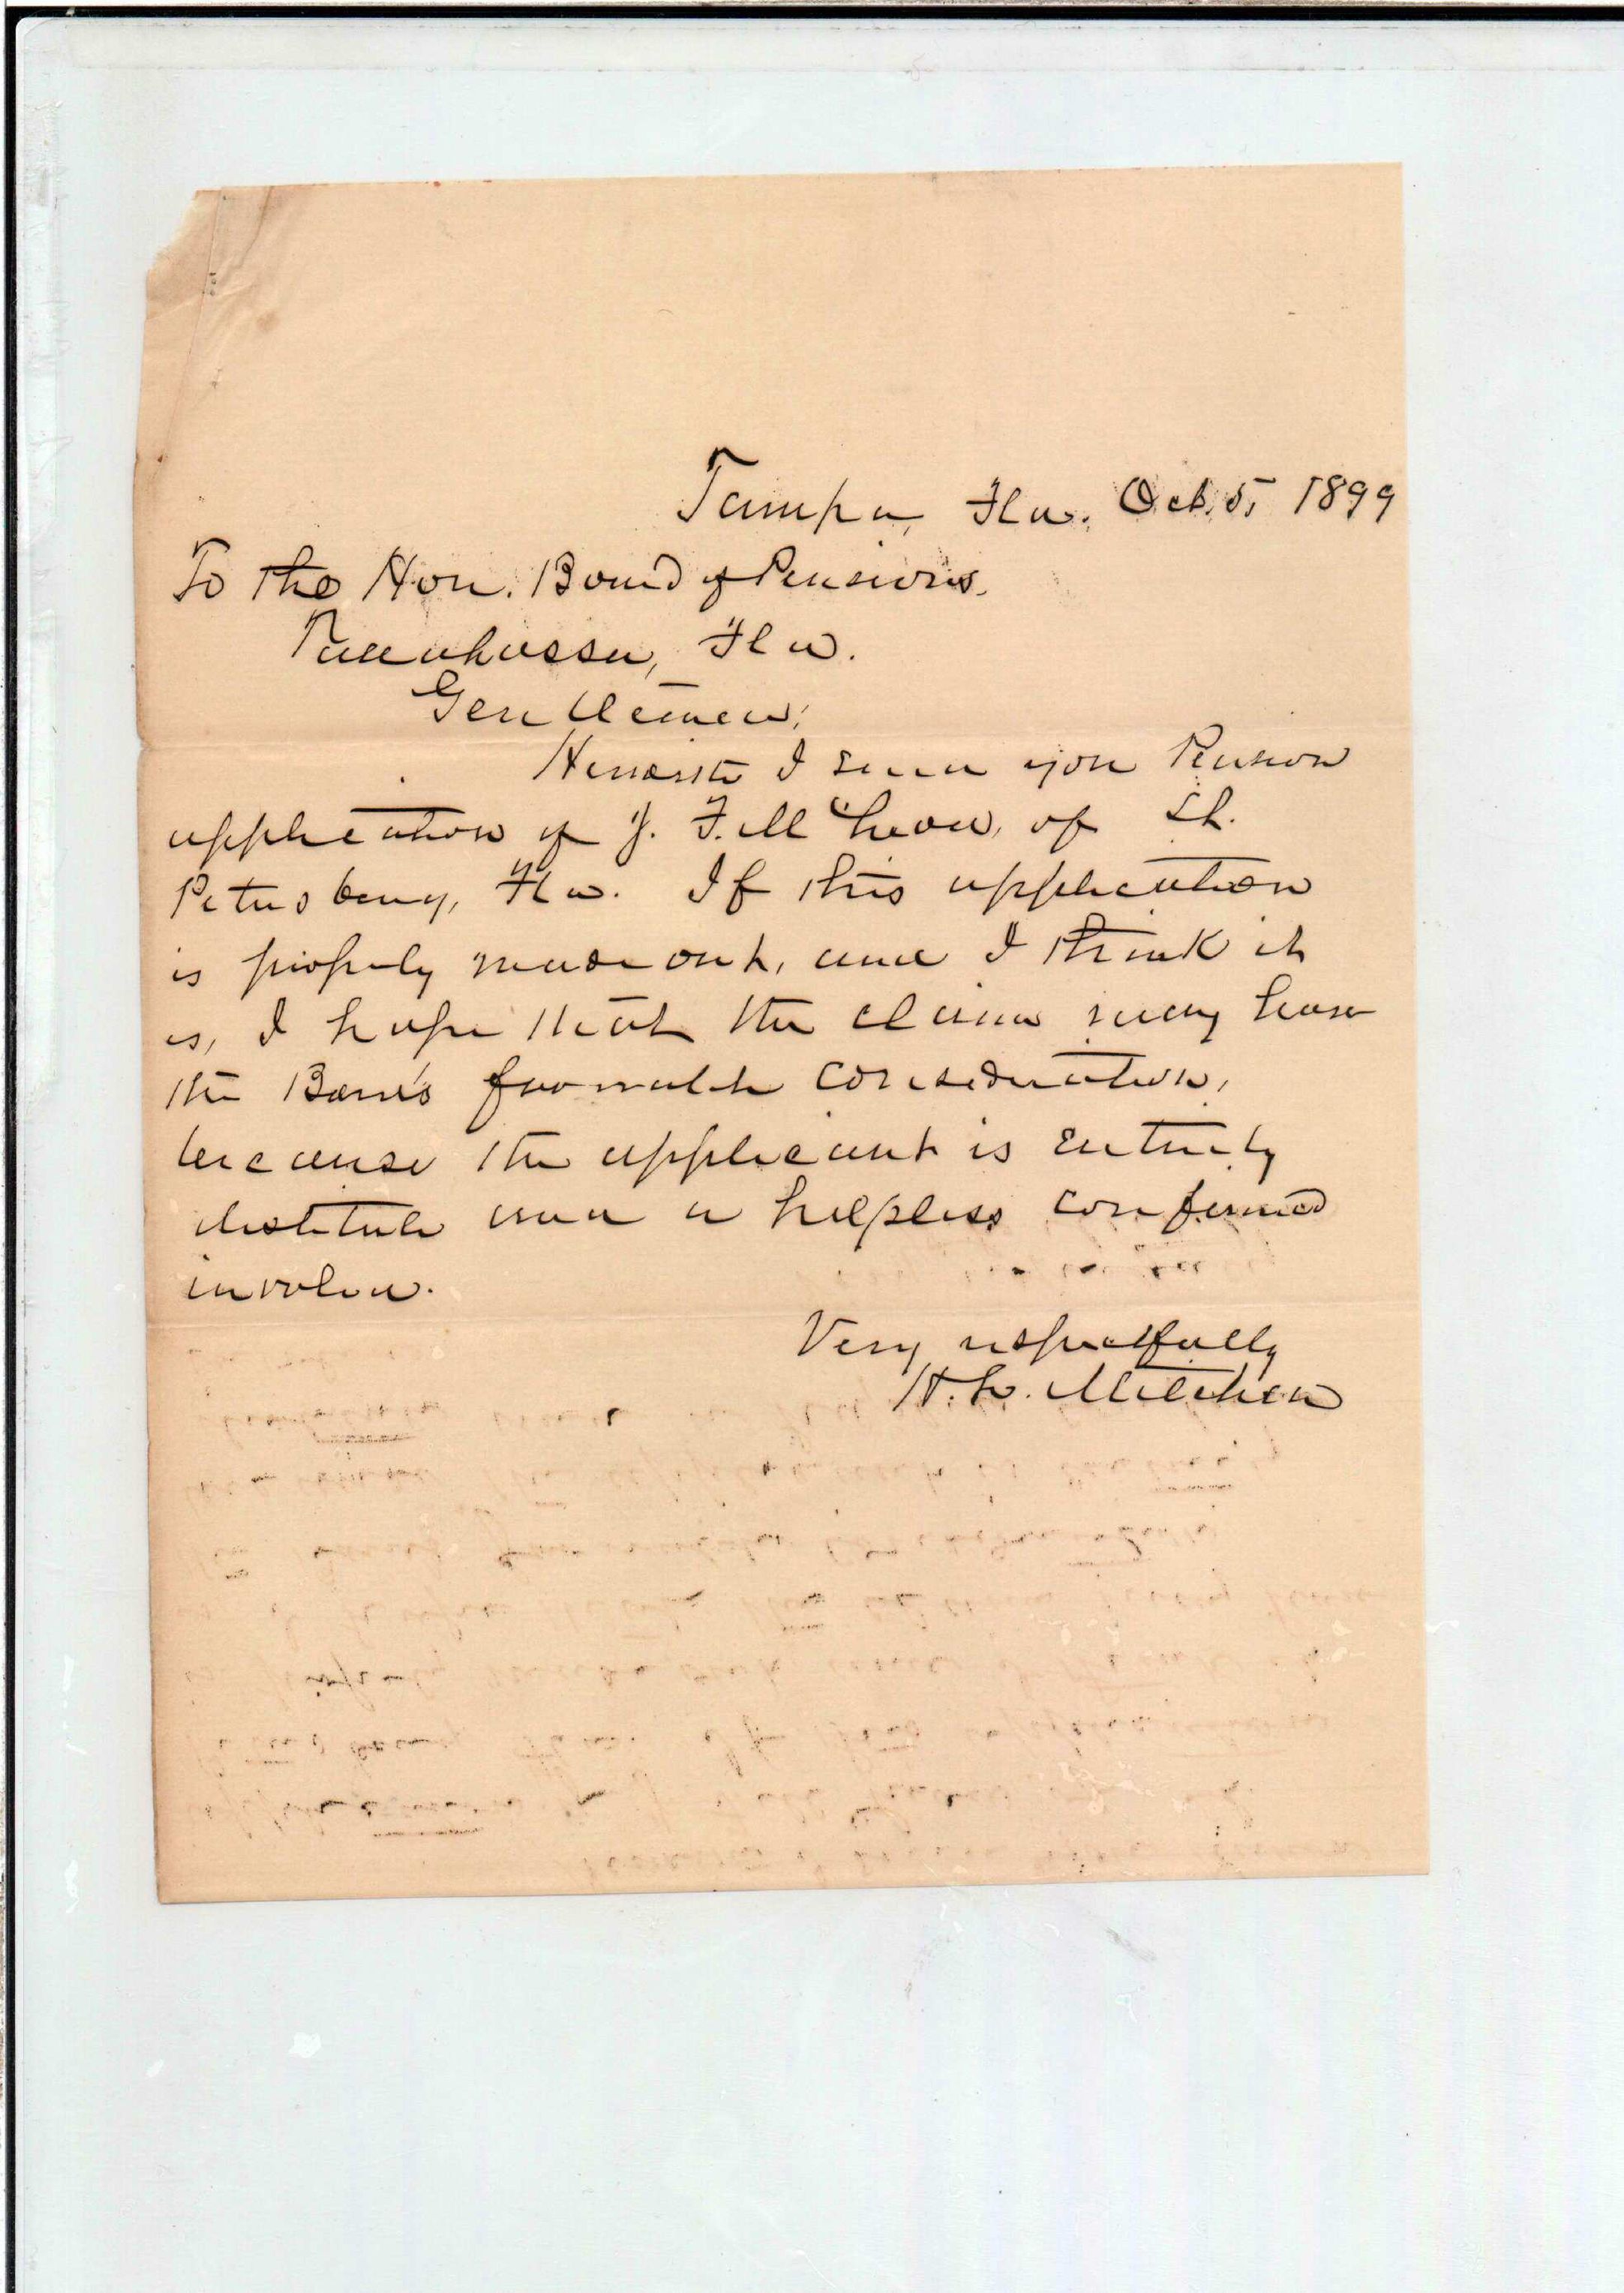 Tampa, Fla. Oct. 5, 1899
To the Hon. Board of Pensions,
Tallahassee, Fla.
Gentlemen:
Herewith I send you Pension
application of J. F. of St.
Petersburg, Fla. If this application
is properly made out, and I think it
is, I hope that the claim may have
the Board's favorable consideration,
because the applicant is entirely
destitute and a helpless confirmed
invalid.
Very respectfully
H. L. Mitchell